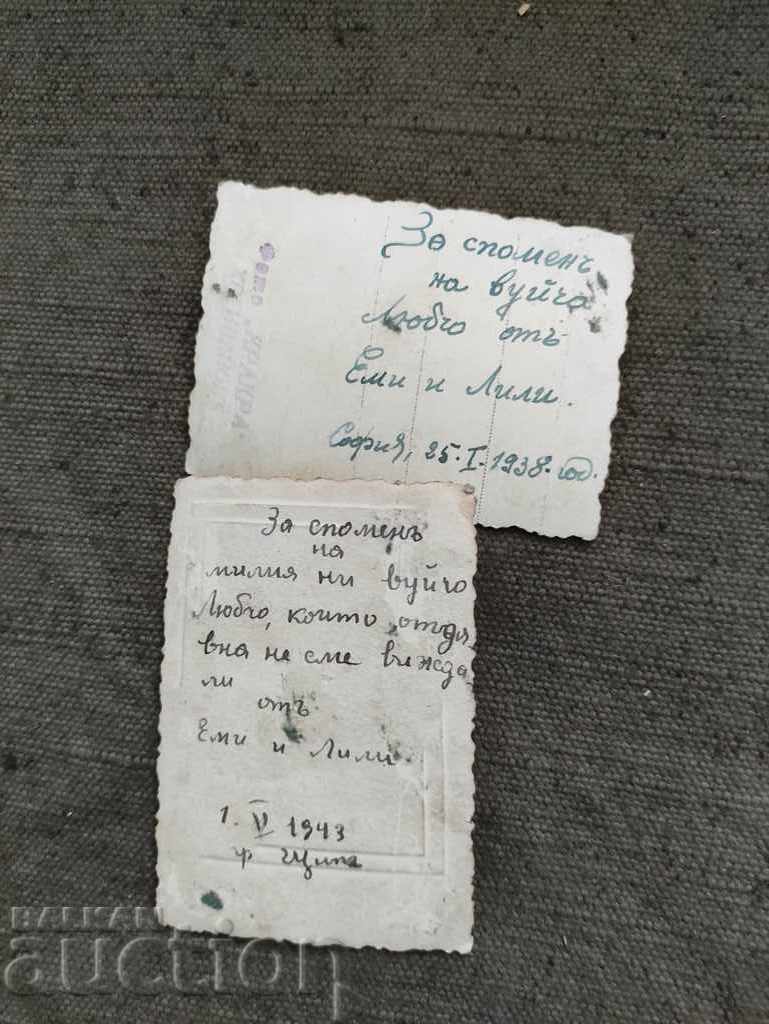 За споменъ
на вуйчо
Любчо отъ
Еми и Лили.
София, 25.I.1938.год.
Фото
За споменъ
на
милия ни вуйчо
Любчо, които отдя
вна не сме вижда
ли
отъ
Еми и Лили.
1. V 1943
BALKAN
auction